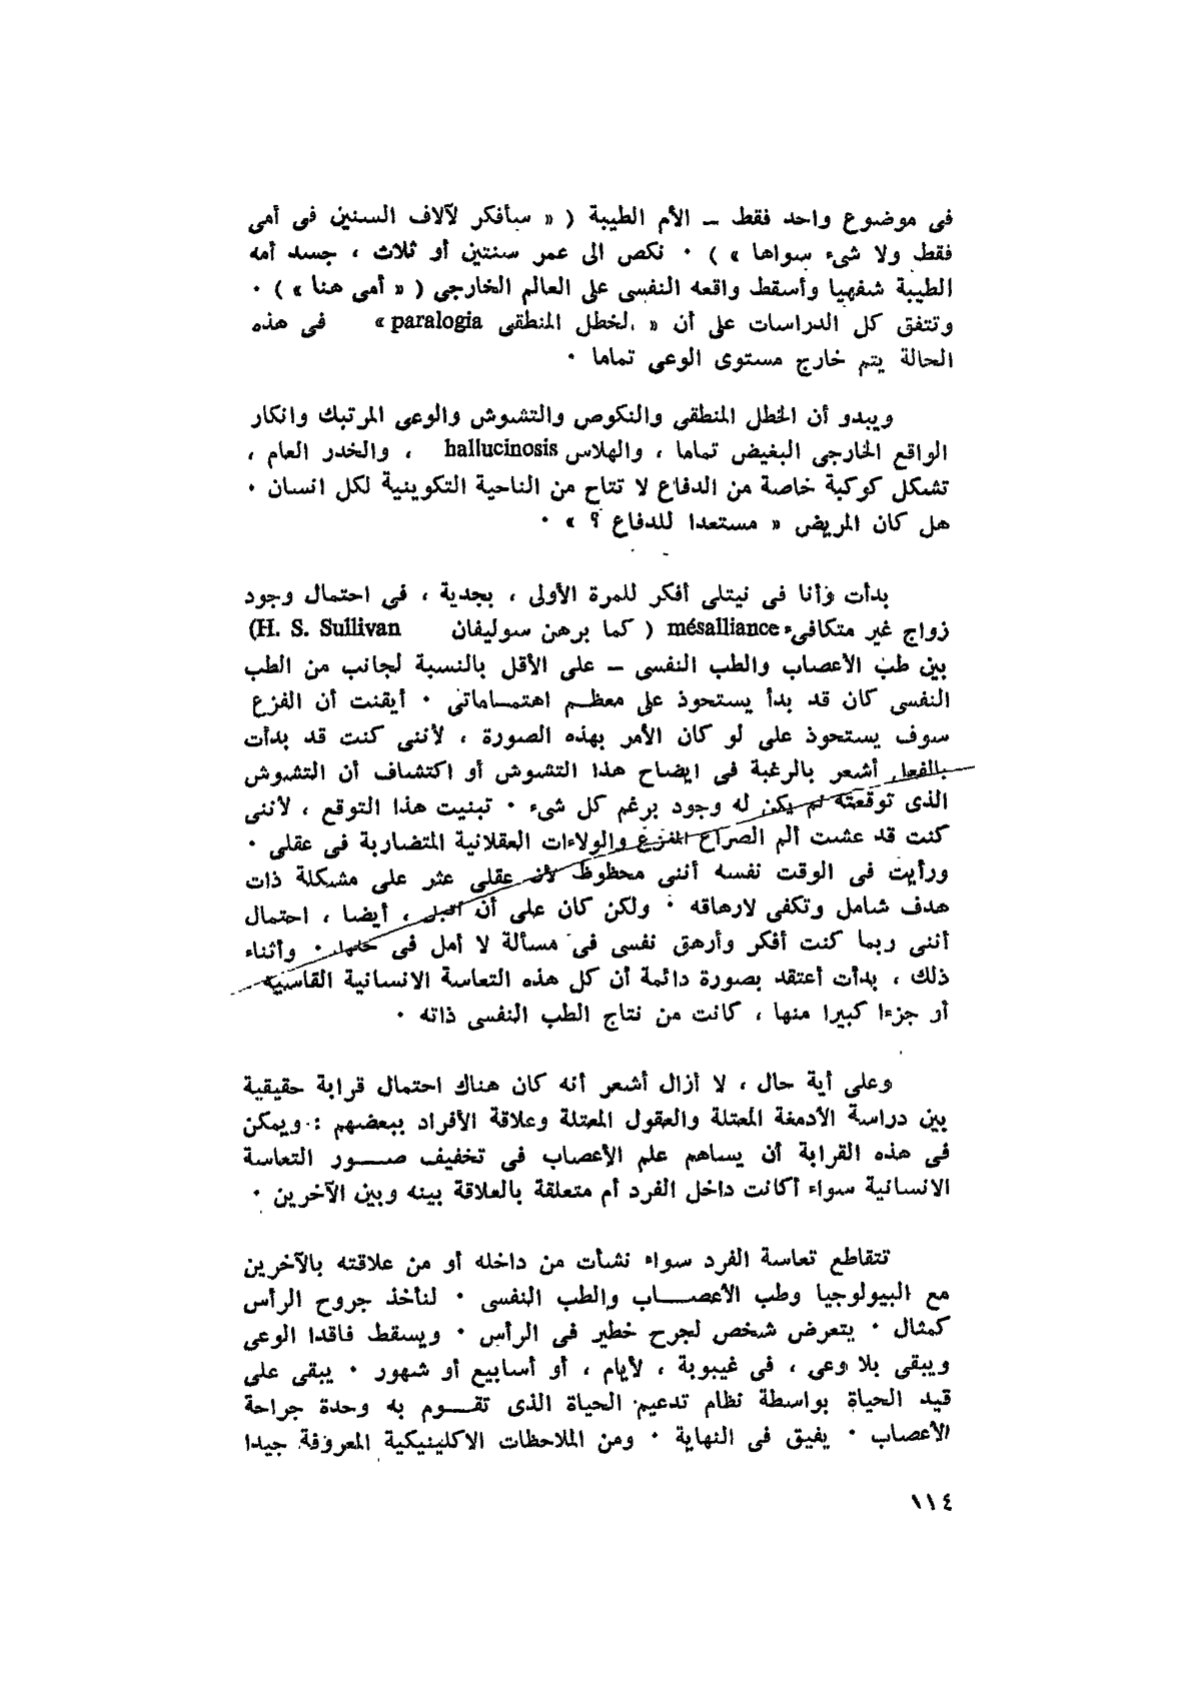 فى موضوع واحد فقط ــ الأم الطيبة ( « سأفكر لآلاف السنين فى أمى
فقط ولا شىء سواها » ) ٠ نكص الى عمر سنتين أو ثلاث ، جسد أمه
الطيبة شفهيا وأسقط واقعه النفسى على العالم الخارجى ( « أمى هنا » ) ٠
وتتفق كل الدراسات على أن « الخطل المنطقى paralogia » فى هذه
الحالة يتم خارج مستوى الوعى تماما ٠
ويبدو أن الخطل المنطقى والنكوص والتشوش والوعى المرتبك وانكار
الواقع الخارجى البغيض تماما ، والهلاس hallucinosis ، والخدر العام ،
تشكل كوكبة خاصة من الدفاع لا تتاح من الناحية التكوينية لكل انسان ٠
هل كان المريض « مستعدا للدفاع ؟ » ٠
بدأت وأنا فى نيتلى أفكر للمرة الأولى ، بجدية ، فى احتمال وجود
زواج غير متكافىء mésalliance ( كما برهن سوليفان H. S. Sullivan)
بين طب الأعصاب والطب النفسى – على الأقل بالنسبة لجانب من الطب
النفسى كان قد بدأ يستحوذ على معظم اهتماماتى ٠ أيقنت أن الفزع
سوف يستحوذ على لو كان الأمر بهذه الصورة ، لأننى كنت قد بدأت
بالفعل أشعر بالرغبة فى ايضاح هذا التشوش أو اكتشاف أن التشوش
الذى توقعته لم يكن له وجود برغم كل شىء ٠ تبنيت هذا التوقع ، لأننى
كنت قد عشت ألم الصراع المفزع والولاءات العقلانية المتضاربة فى عقلى ٠
ورأيت فى الوقت نفسه أننى محظوظ لأن عقلى عثر على مشكلة ذات
هدف شامل وتكفى لارهاقه ٠ ولكن كان على أن أقبل ، أيضا ، احتمال
أننى ربما كنت أفكر وأرهق نفسى فى مسألة لا أمل فى حلها ٠ وأثناء
ذلك ، بدأت أعتقد بصورة دائمة أن كل هذه التعاسة الانسانية القاسية
أو جزءا كبيرا منها ، كانت من نتاج الطب النفسى ذاته ٠
وعلى أية حال ، لا أزال أشعر أنه كان هناك احتمال قرابة حقيقية
بين دراسة الأدمغة المعتلة والعقول المعتلة وعلاقة الأفراد ببعضهم : ويمكن
فى هذه القرابة أن يساهم علم الأعصاب فى تخفيف صور التعاسة
الانسانية سواء أكانت داخل الفرد أم متعلقة بالعلاقة بينه وبين الآخرين ٠
تتقاطع تعاسة الفرد سواء نشأت من داخله أو من علاقته بالآخرين
مع البيولوجيا وطب الأعصاب والطب النفسى ٠ لنأخذ جروح الرأس
كمثال ٠ يتعرض شخص لجرح خطير فى الرأس ٠ ويسقط فاقدا الوعى
ويبقى بلا وعى ، فى غيبوبة ، لأيام ، أو أسابيع أو شهور ٠ يبقى على
قيد الحياة بواسطة نظام تدعيم الحياة الذى تقوم به وحدة جراحة
الأعصاب ٠ يفيق فى النهاية ٠ ومن الملاحظات الاكلينيكية المعروفة جيدا
١١٤